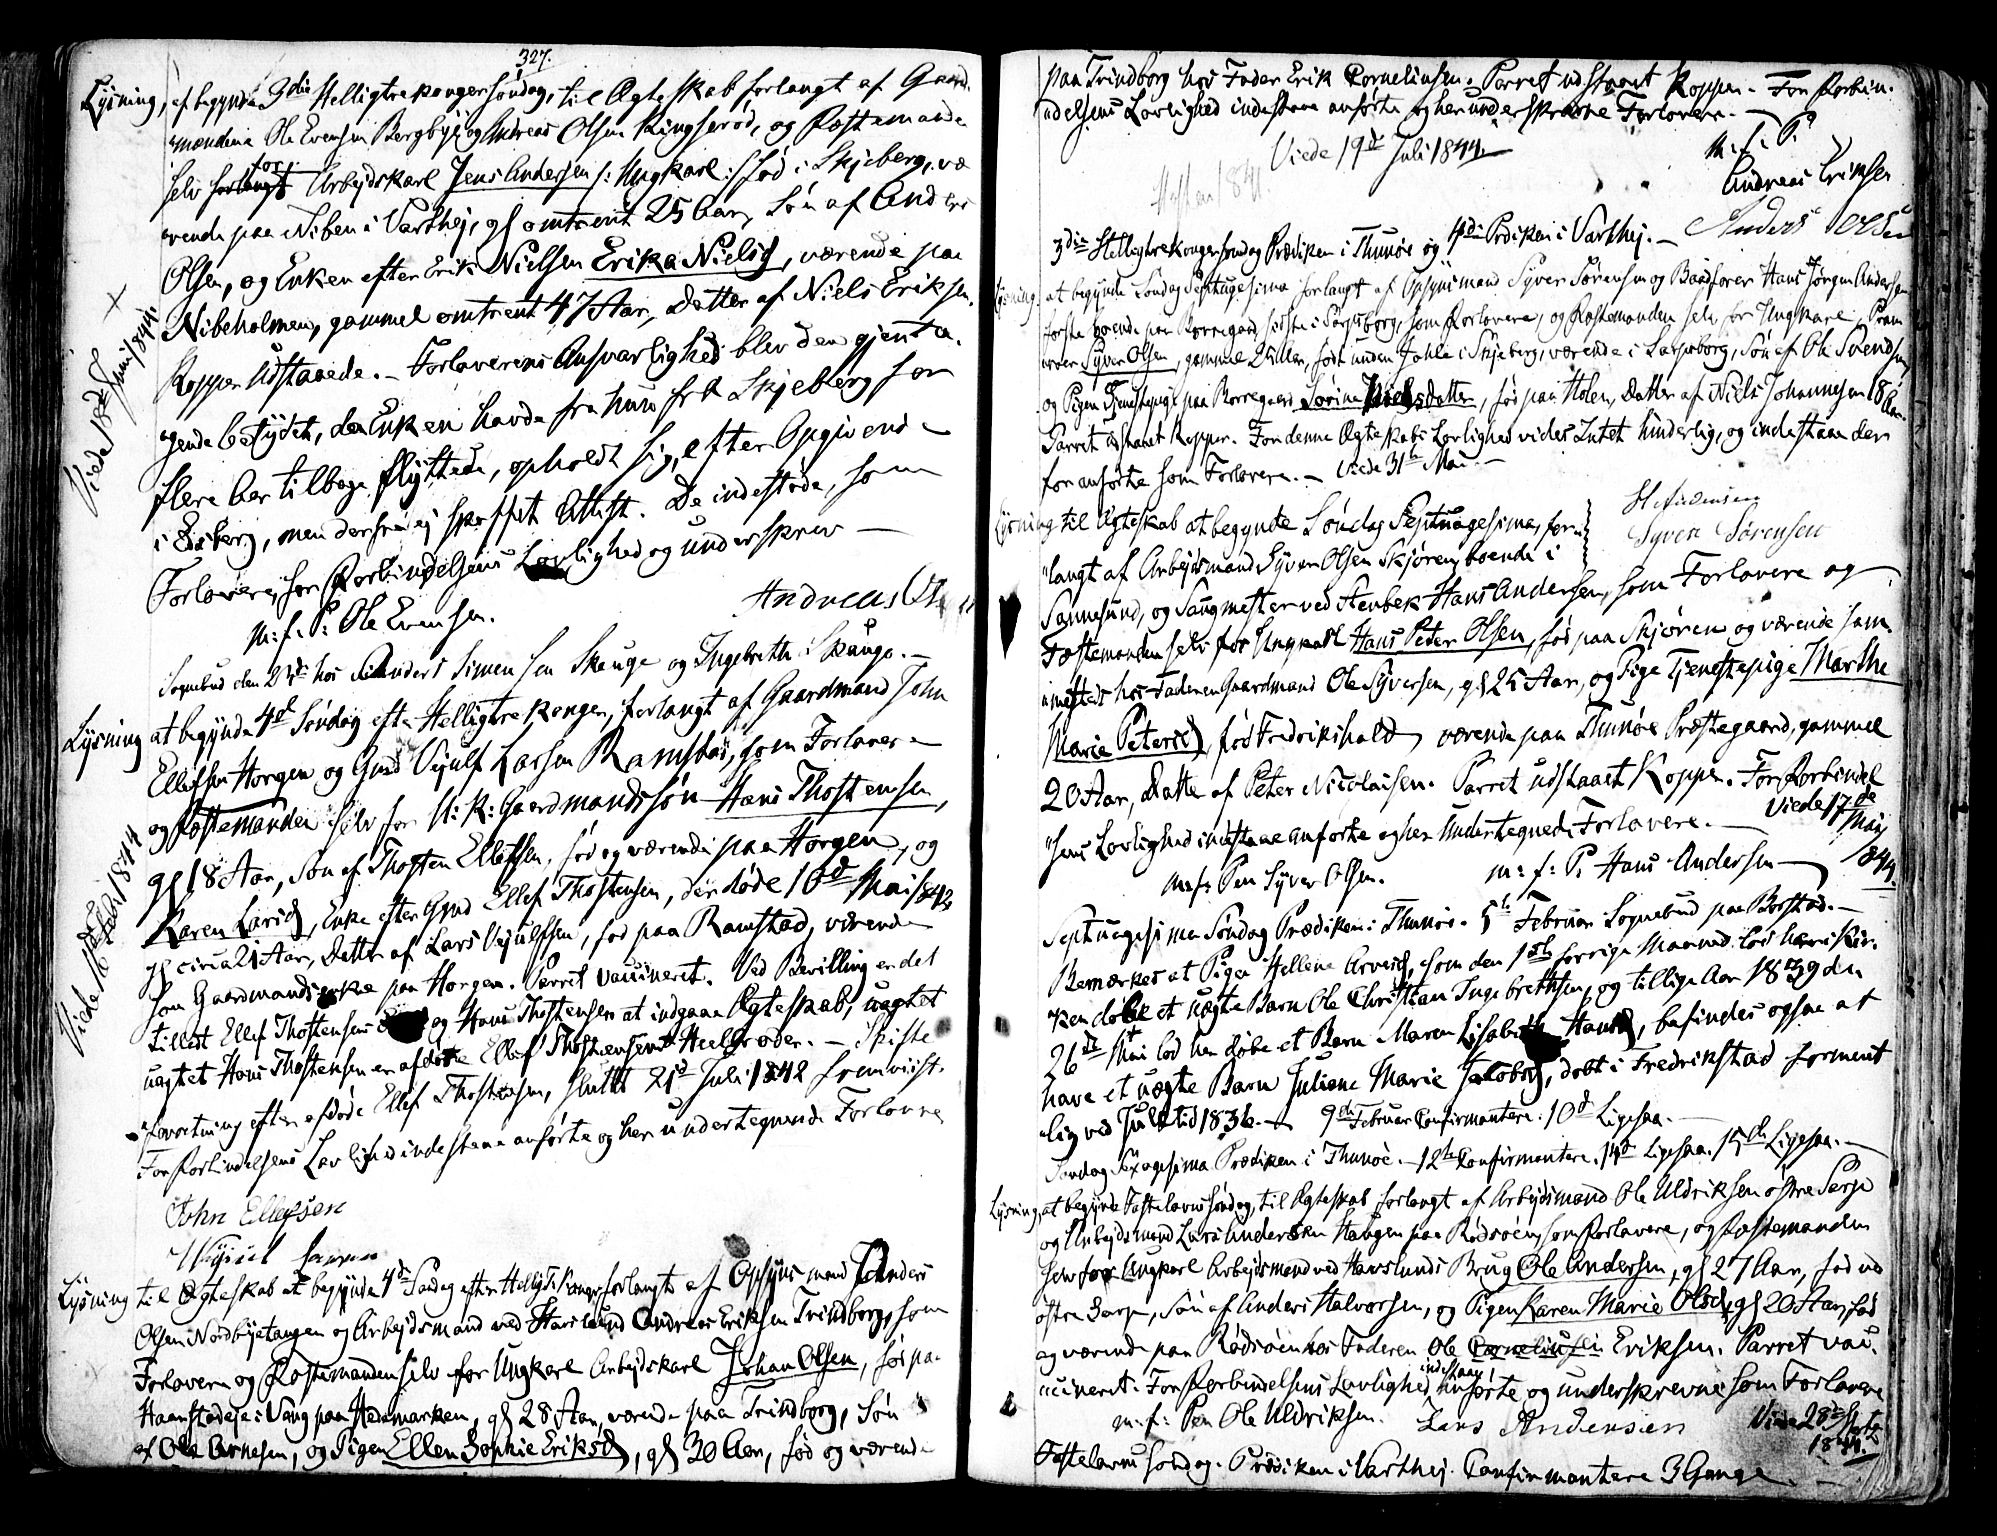 327.
Lysning, at begynde 3die Helligtrekongersøndag, til Ægteskab forlangt af Gaard-
mændene Ole Evensen Bergbye og Andreas Olsen Ringsrød, og Fæstemanden
selv for Arbejdskarl Jens Andersen /: Ungkarl :/ fød i Skjeberg, væ
rende paa Niben i Varthej, gl omtrent 25 Aar, Søn af Anders
Olsen, og Enken efter Erik Nielsen Erika Nielsd, værende paa
Nibeholmen, gammel omtrent 47 Aar, Datter af Niels Eriksen.
Kopper Udstaaede. – Forloverens Ansvarlighed blev den gjenta-
gende betydet, da Enken havde fra hun fra Skjeberg for
flere Aar tilbage flyttede, opholdt sig, efter Opgivende
i Eidsberg, men derfra ej skaffet Attest. De indestode, som
Forlovere, for Forbindelsens Lovlighed og underskrev –
Viede 18de Juni 1844
m: f: P: Ole Evensen.
Andreas
Sognebud den hos Anders Simensen Skauge og Ingebreth Skauge. –
Lysning at begynde 4de Søndag efter Helligtrekonger, forlangt af Gaardmand John
Ellefsen Horgen og Gmd Vejulf Larsen Ramstad, som Forlovere
og Fæstemanden selv for U: K: Gaardmandssøn Hans Thostensen,
gl 18 Aar, Søn af Thosten Ellefsen, fød og værende paa Horgen, og
Karen Larsd, Enke efter Gmd Ellef Thostensen, der døde 16de Mai 1842
gl circa 21 Aar, Datter af Lars Vejulfsen, fød paa Ramstad, værende
som Gaardmandsenke paa Horgen. Parret vaccineret. Ved Bevilling er det
tilladt Ellef Thostensens og Hans Thostensen at indgaae Ægteskab, uagtet
uagtet Hans Thostensen er afdøde Ellef Thostensens Heelbroder. – Skifte
forretning efter afdøde Ellef Thostensen, sluttet 21de Juli 1842 fremviist.
For Forbindelsens Lovlighed indestaae anførte og her undertegnede Forlovere
Viede 1844
John Ellefsen
Lysning til Ægteskab at begynde 4de Søndag efter Hellig 3 Konger, forlangt af Opsynsmand Anders
Olsen i Nordbyetangen og Arbejdsmand ved Hafslund Andreas Eriksen Trindborg, som
Forlovere og Fæstemanden selv for Ungkarl Arbejdskarl Johan Olsen, fød paa
Haanstadeje i Vang paa Hedemarken, gl 28 Aar, værende paa Trindborg, Søn
af Ole Arnesen, og Pigen Ellen Sophie Eriksd, gl 30 Aar, fød og værende
paa Trindborg hos Fader Erik Corneliusen. Parret udstaaet Kopper. – For Forbin-
delsens Lovlighed indestaae anførte og her underskrevne Forlovere. –
Viede 19de Juli 1844.
m. f. P.
Andreas Eriksen
Anders Olsen
3die Helligtrekongersøndag Prædiken i Thunøe og 4de Prædiken i Varthej. –
Lysning at begynde Søndag Septuagesima forlangt af Opsynsmand Syver Sørensen og Baadfører Hans Jørgen Andersen
første boende paa Borregaard, sidste i Sarpsborg, som Forlovere, og Fæstemanden selv for Ungkarl, Pram
Syver Olsen, gammel 25 Aar, født under Hohle i Skjeberg, værende i Sarpsborg, Søn af Ole Svendsen
og Pigen Tjenestepige paa Borregaard Sørine Nielsdatter, fød paa Holen, Datter af Niels Johannesen 18 Aar.
Parret udstaaet Kopper. For denne Ægteskabs Lovlighed vides Intet hinderlig, og indestaae der
for anførte som Forlovere. – Viede 31te Mai. –
Syver Sørensen
Lysning til Ægteskab at begynde Søndag Septuagesima, for-
langt af Arbejdsmand Syver Olsen Skjøren boende i
Sannesund, og Saugmester ved Stenbek Hans Andersen, som Forlovere og
Fæstemanden selv for Ungkarl Hans Peter Olsen, fød paa Skjøren og værende sam-
mesteds hos Faderen Gaardmand Ole Syversen, gl 25 Aar, og Pige Tjenestepige Marthe
Marie Petersd, fød Fredrikshald, værende paa Thunøe Præstegaard, gammel
20 Aar, Datter af Peter Nicolaisen. Parret udstaaet Kopper. For Forbindel
sens Lovlighed indestaae anførte og her Undertegnede Forlovere. –
Viede 17de Mai 1844.
m: f: Pen Syver Olsen.
m: f: P: Hans Andersen
Septuagesima Søndag Prædiken i Thunøe. 5te Februar Sognebud paa Borstad. –
Bemærkes at Pigen Hellene Arvesd, som den forrige Maaned lod her i Kir-
ken døbe et uægte Barn Ole Christian Ingebrethsen, og tillige Aar 1839 den
26de Mai lod her døbe et Barn Maren Lisabeth Hansd, befindes ogsaa at
have et uægte Barn Juliane Marie Jakobsd, døbt i Fredrikstad forment
lig ved Juletid 1836. – 9de Februar Confirmantere. 10de Ligesaa. –
Søndag Sexagesima Prædiken i Thunøe. – 12te Confirmantere. 14de Ligesaa. 15de Ligesaa. –
Lysning, at begynde Fastelavnssøndag, til Ægteskab forlangt af Arbejdsmand Ole Uldriksen østre Sarpe
og Arbejdsmand Lars Andersen Haugen paa Rødsøen, som Forlovere, og Fæstemanden
selv for Ungkarl Arbejdsmand ved Hafslunds Brug Ole Andersen, gl 27 Aar, fød ved
østre Sarpe, Søn af Anders Halvorsen, og Pigen Karen Marie Olsd, gl 20 Aar, fød
og værende paa Rødsøen hos Faderen Ole Cornelinsen Eriksen. Parret vac-
cineret. For Forbindelsens Lovlighed indestaae anførte og underskrevne som Forlovere
m: f: Pen Ole Uldriksen.
Lars Andersen
Viede 28de 1844.
Fastelavnssøndag. Prædiken i Varthej. Confirmantere 3 Gange. –